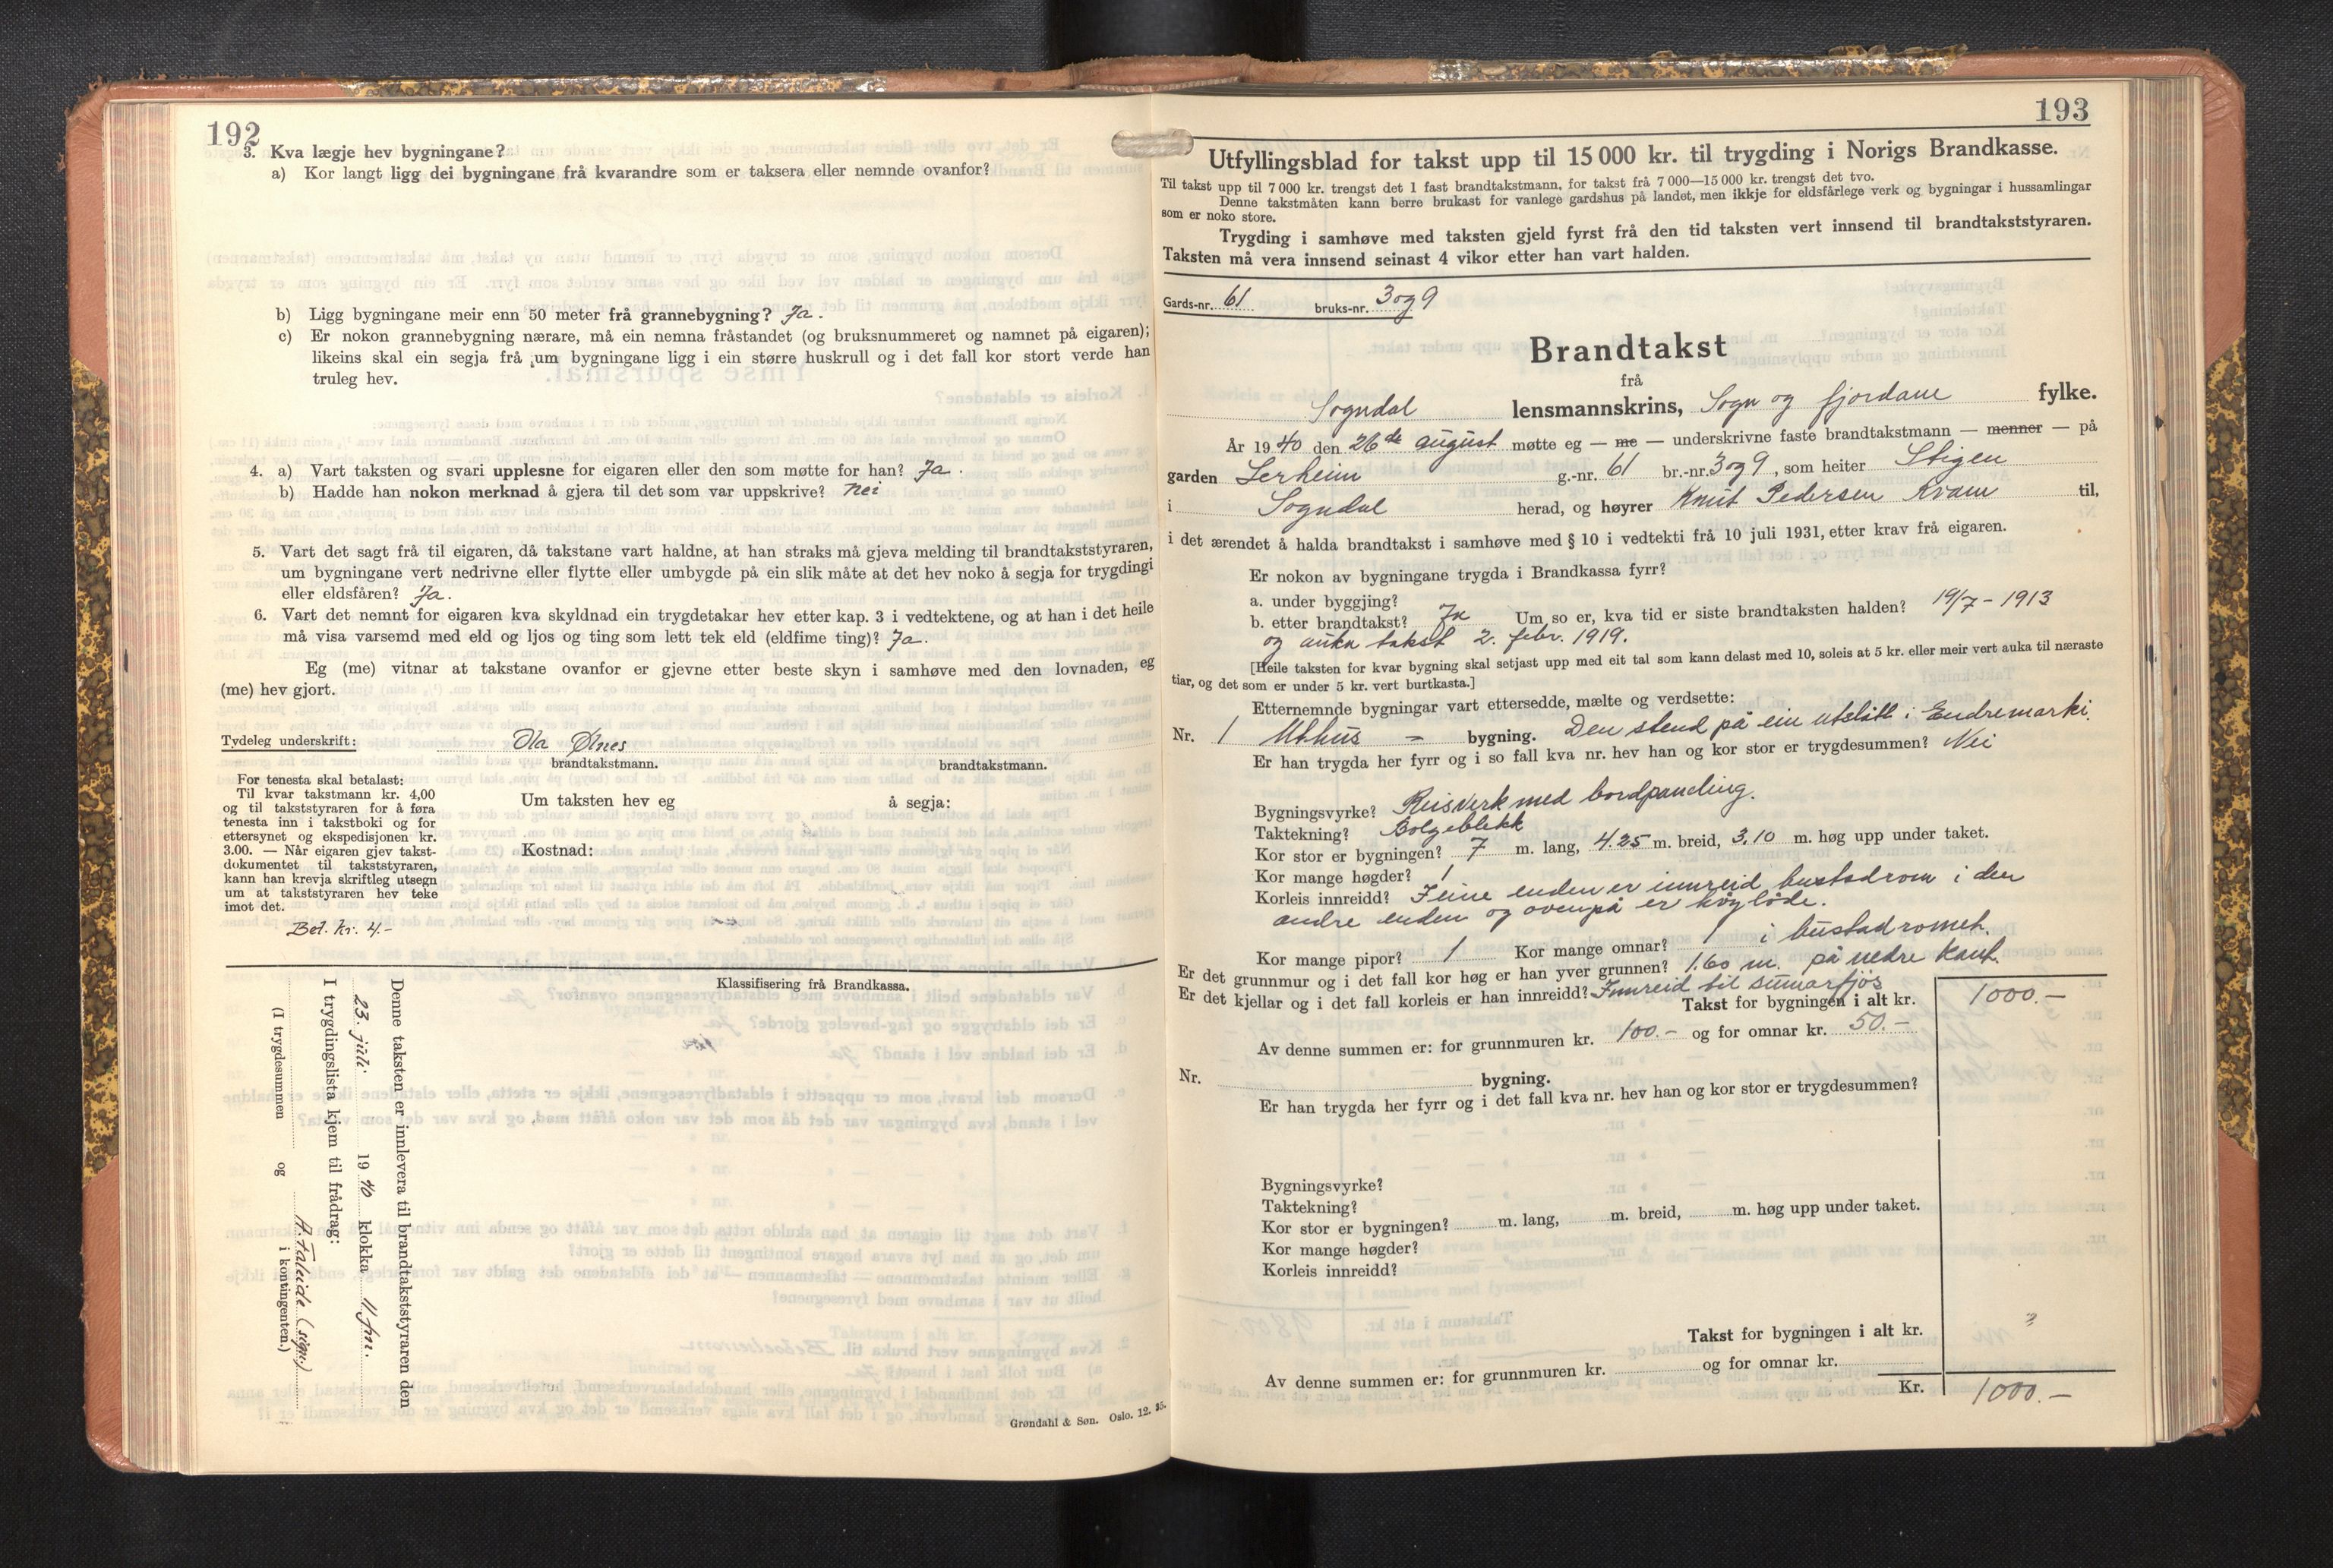 192
3. Kva lægje hev bygningane?
a) Kor langt ligg dei bygningane frå kvarandre som er taksera eller nemnde ovanfor?
b) Ligg bygningane meir enn 50 meter frå grannebygning? Ja.
c) Er nokon grannebygning nærare, må ein nemna fråstandet (og bruksnummeret og namnet på eigaren);
likeins skal ein segja frå um bygningane ligg i ein større huskrull og i det fall kor stort verde han
truleg hev.
4. a) Vart taksten og svari upplesne for eigaren eller den som møtte for han? Ja.
b) Hadde han nokon merknad å gjera til det som var uppskrive? Nei
5. Vart det sagt frå til eigaren, då takstane vart haldne, at han straks må gjeva melding til brandtakststyraren,
um bygningane vert nedrivne eller flytte eller umbygde på ein slik måte at det hev noko å segja for trygdingi
eller eldsfåren? Ja.
6. Vart det nemnt for eigaren kva skyldnad ein trygdetakar hev etter kap. 3 i vedtektene, og at han i det heile
må visa varsemd med eld og ljos og ting som lett tek eld (eldfime ting)? Ja.
Eg (me) vitnar at takstane ovanfor er gjevne etter beste skyn i samhøve med den lovnaden, eg
(me) hev gjort.
Tydeleg underskrift: Ola Ølnes
brandtakstmann. brandtakstmann.
For tenesta skal betalast:
Til kvar takstmann kr. 4,00
og til takststyraren for å føra
tenesta inn i takstboki og for
ettersynet og ekspedisjonen kr.
3.00. — Når eigaren gjev takst-
dokumentet til takststyraren,
kann han krevja skriftleg utsegn
um at takststyraren hev teke
imot det.
Um taksten hev eg å segja:
Kostnad:
Bet. kr. 4.-
Klassifisering frå Brandkassa.
Denne taksten er innlevera til brandtakststyraren den
23. juli 1940 klokka 11 fm.
I trygdingslista kjem til frådrag:
A. Faleide (sign.)
(I trygdesummen og i kontingenten.)
Grøndahl & Søn. Oslo. 12. 35.
193
Utfyllingsblad for takst upp til 15 000 kr. til trygding i Norigs Brandkasse.
Til takst upp til 7 000 kr. trengst det 1 fast brandtakstmann, for takst frå 7 000—15 000 kr. trengst det tvo.
Denne takstmåten kann berre brukast for vanlege gardshus på landet, men ikkje for eldsfårlege verk og bygningar i hussamlingar
som er noko store.
Trygding i samhøve med taksten gjeld fyrst frå den tid taksten vert innsend til brandtakststyraren.
Taksten må vera innsend seinast 4 vikor etter han vart halden.
Gards-nr. 61 bruks-nr. 3 og 9
Brandtakst
frå
Sogndal lensmannskrins, Sogn og fjordane fylke.
År 1940 den 26de august møtte eg — me — underskrivne faste brandtakstmann — menner — på
garden Lerheim g.-nr. 61 br.-nr. 3 og 9, som heiter Stigen
i Sogndal herad, og høyrer Knut Pedersen Kvam til,
i det ærendet å halda brandtakst i samhøve med § 10 i vedtekti frå 10 juli 1931, etter krav frå eigaren.
Er nokon av bygningane trygda i Brandkassa fyrr?
a. under byggjing?
b. etter brandtakst? Ja Um so er, kva tid er siste brandtaksten halden? 19/7 - 1913
og auka takst 2. febr. 1919.
[Heile taksten for kvar bygning skal setjast upp med eit tal som kann delast med 10, soleis at 5 kr. eller meir vert auka til næraste
tiar, og det som er under 5 kr. vert burtkasta.]
Etternemnde bygningar vart ettersedde, mælte og verdsette:
Nr. 1 Uthus - bygning. Den stend på ein utslått i Endremarki.
Er han trygda her fyrr og i so fall kva nr. hev han og kor stor er trygdesummen? Nei
Bygningsvyrke? Reisverk med bordpaneling.
Taktekning? Bolgeblekk
Kor stor er bygningen? 7 m. lang, 4.25 m. breid, 3,10 m. høg upp under taket.
Kor mange høgder? 1
Korleis innreidd? I eine enden er innreid bustadrom i den
andre enden og ovenpå er høyløde.
Kor mange pipor? 1 Kor mange omnar? 1 i bustadromet.
Er det grunnmur og i det fall kor høg er han yver grunnen? 1.60 m. på nedre kant.
Er det kjellar og i det fall korleis er han innreidd? Innreid til sumarfjøs
Takst for bygningen i alt kr. 1000.-
Av denne summen er: for grunnmuren kr. 100.- og for omnar kr. 50.-
Nr. bygning.
Er han trygda her fyrr og i det fall kva nr. hev han og kor stor er trygdesummen?
Bygningsvyrke?
Taktekning?
Kor stor er bygningen? m. lang, m. breid, m. høg upp under taket.
Kor mange høgder?
Korleis innreidd?
Takst for bygningen i alt kr.
Av denne summen er: for grunnmuren kr. og for omnar kr.
Kr. 1000.-